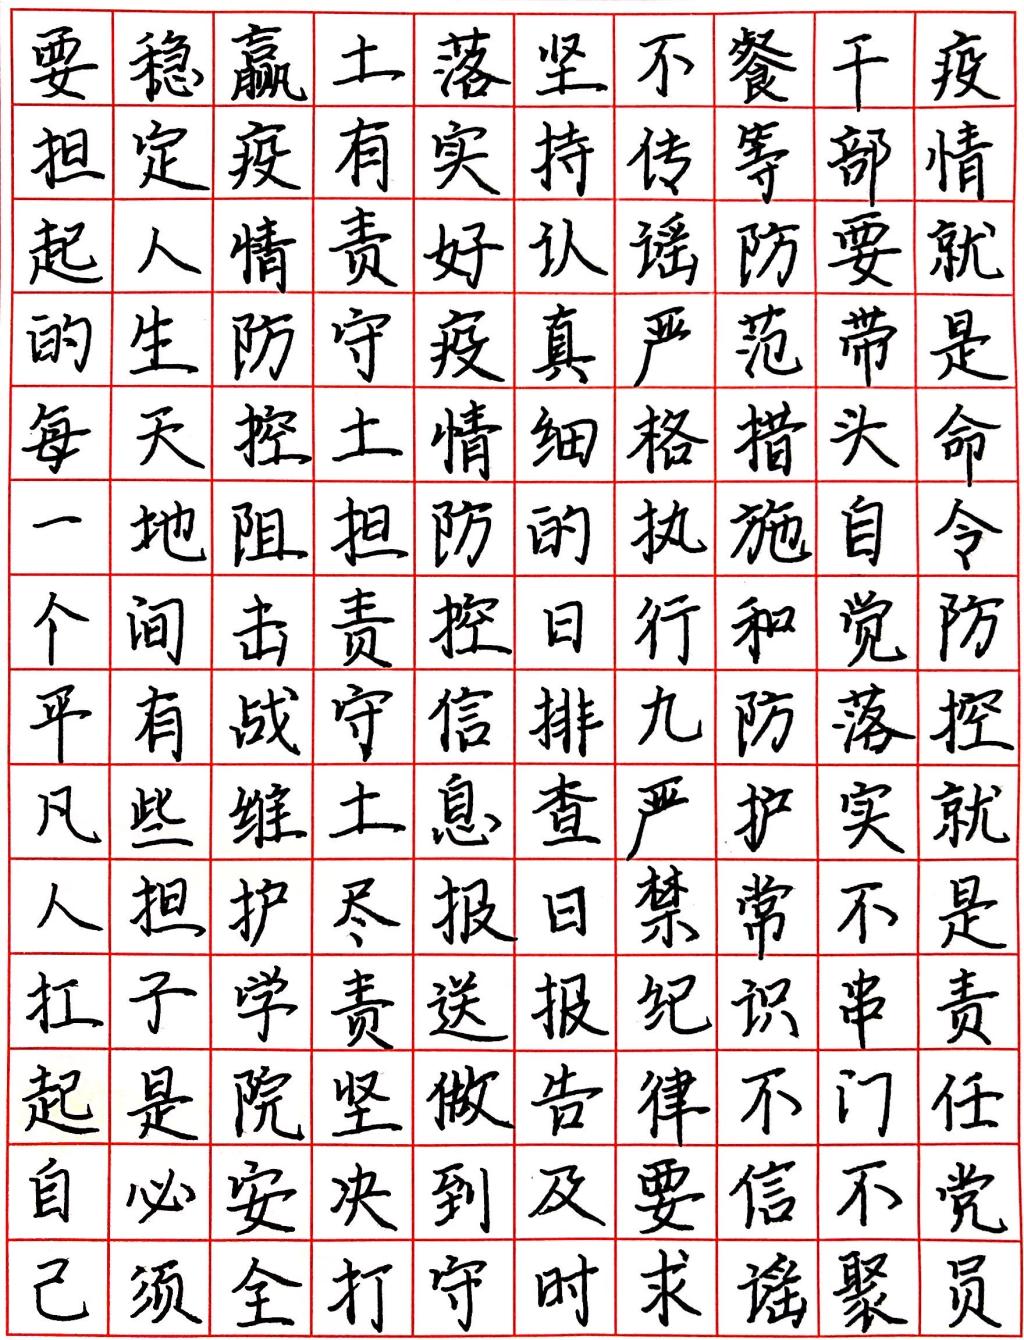 疫情就是命令防控就是责任党员
干部要带头自觉落实不串门不聚
餐等防范措施和防护常识不信谣
不传谣严格执行九严禁纪律要求
坚持认真细的日排查日报告及时
落实好疫情防控信息报送做到守
土有责守土担责守土尽责坚决打
赢疫情防控阻击战维护学院安全
稳定人生天地间有些担子是必须
要担起的每一个平凡人扛起自己